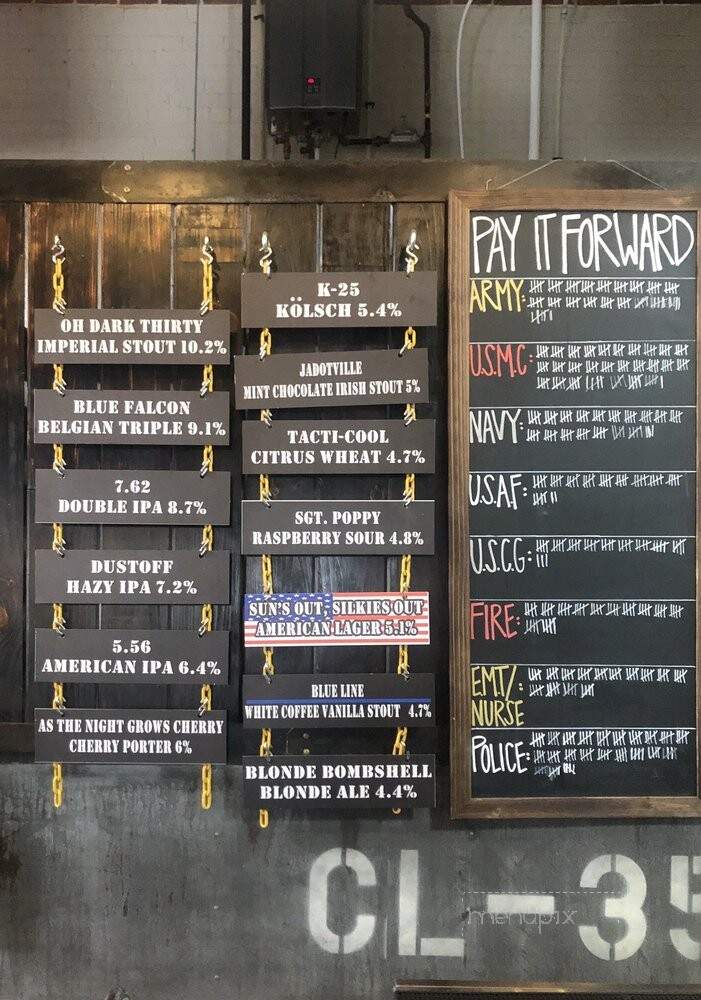 OH DARK THIRTY
IMPERIAL STOUT 10.2%
BLUE FALCON
BELGIAN TRIPLE 9.1%
7.62
DOUBLE IPA 8.7%
DUSTOFF
HAZY IPA 7.2%
5.56
AMERICAN IPA 6.4%
AS THE NIGHT GROWS CHERRY
CHERRY PORTER 6%
K-25
KÖLSCH 5.4%
JADOTVILLE
MINT CHOCOLATE IRISH STOUT 5%
TACTI-COOL
CITRUS WHEAT 4.7%
SGT. POPPY
RASPBERRY SOUR 4.8%
SUN'S OUT, SILKIES OUT
AMERICAN LAGER 5.1%
BLUE LINE
WHITE COFFEE VANILLA STOUT 4.7%
BLONDE BOMBSHELL
BLONDE ALE 4.4%
PAY IT FORWARD
ARMY:
U.S.M.C:
NAVY:
U.S.A.F:
U.S.C.G:
FIRE:
EMT/:
NURSE
POLICE:
CL-35
menupix